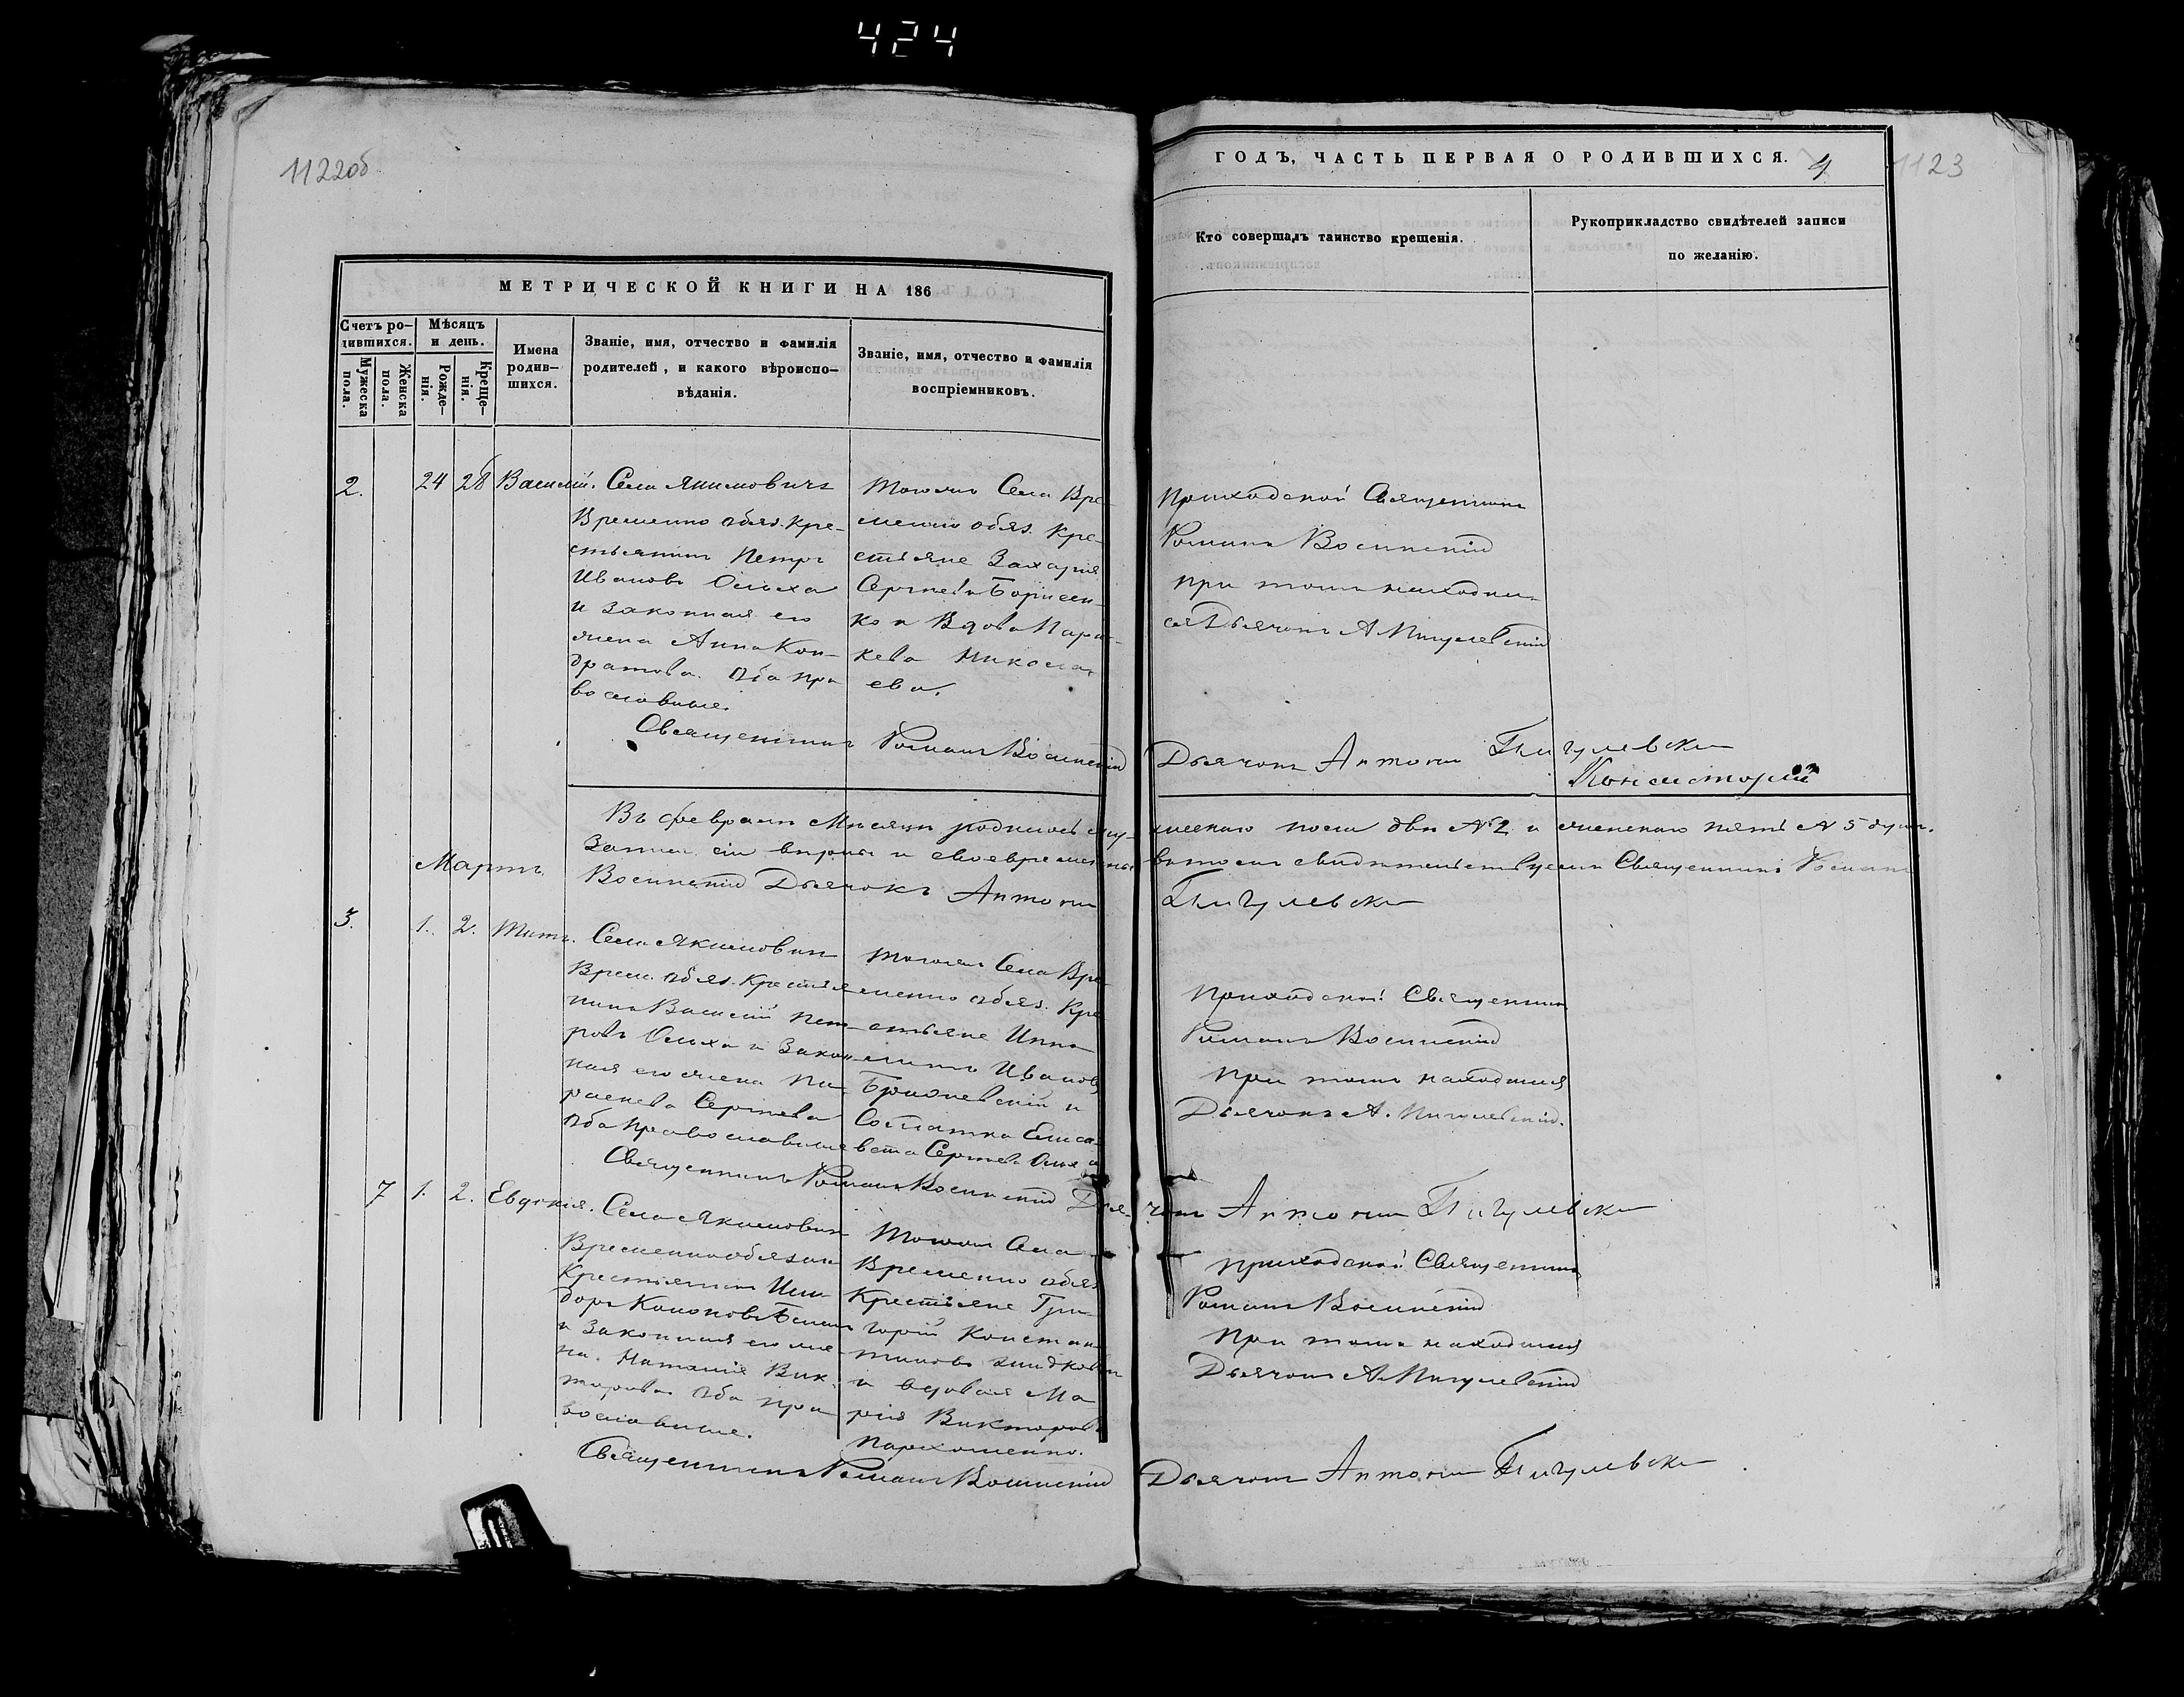 424
1122об
1123
МЕТРИЧЕСКОЙ КНИГИ НА 186
ГОДЪ, ЧАСТЬ ПЕРВАЯ О РОДИВШИХСЯ. 4
Счетъ ро-
дившихся.
Мужеска
пола.
Женска
пола.
Мѣсяцъ
и день.
Рожде-
нія.
Креще-
нія.
Имена
родив-
шихся.
Званіе, имя, отчество и фамилія
родителей, и какого вѣроиспо-
вѣданія.
Званіе, имя, отчество и фамилія
воспріемниковъ.
Кто совершалъ таинство крещенія.
Рукоприкладство свидѣтелей записи
по желанію.
2. 24 28 Василій.
Села Якимовичъ
Временно обяз. кре-
стьянинъ Петръ
Ивановъ Ольха
и законная его
жена Анна Кон-
дратова. Оба пра
вославные.
Тогожъ Села Вре
менно обяз. Кре-
стьяне Захарія
Сергѣевъ Борисен-
ко и Вдова Парас-
кева Никола-
ева.
Приходской Священникъ
Романъ
при томъ находил-
ся Дьячокъ А Пигулевскій
Священникъ Романъ
Дьячокъ Антоній Пигулевски
Въ февралѣ Мѣсяцѣ родилось му-
жескаго пола два №2 и женскаго пять №5 душъ.
Запись сія вѣрна и своевременна
въ томъ свидѣтельствуемъ Священникъ Романъ
Дьячокъ Антоній Пигулевски
Мартъ
3. 1. 2. Титъ.
Села Якимовичъ
Врем. обяз. Крестья
нинъ Василій Пет-
ровъ Ольха и Закон-
ная его жена Па-
раскева Сергѣева
Оба православные
Тогожъ Села Вре
менно обяз. Кре
стьяне
Ивановъ
и
Солдатка Елиса-
вета Сергѣева Ольха
Приходской Священникъ
Романъ
при томъ находился
Дьячокъ А. Пигулевскій.
Священникъ Романъ
Дья-
чокъ Антоній Пигулевски
7 1. 2. Евдокія.
Села Якимовичъ
Временнообязан
Крестьянинъ Иси-
доръ Кононовъ
и Законная его же
на. Наталія Вик-
торова Оба пра
вославные.
Тогожъ Села
Временно обяз
Крестьяне Гри-
горій Констан-
тиновъ
и вдовая Ма-
рія Викторова
Пархоменко.
Приходской Священникъ
Романъ
При томъ находился
Дьячокъ А Пигулевскій
Священникъ Романъ
Дьячокъ Антоній Пигулевски